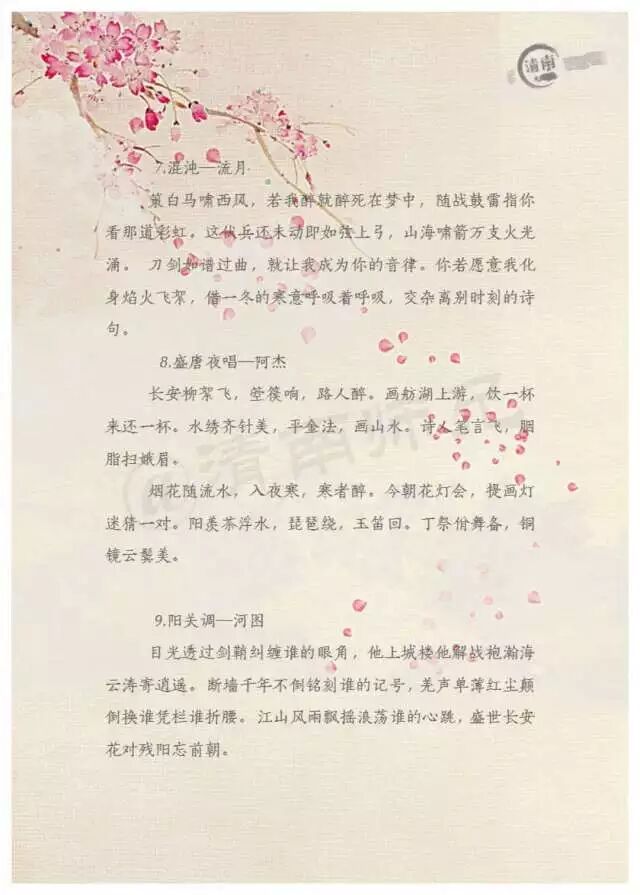 清南
7.混沌—流月
策白马啸西风，若我醉就醉死在梦中，随战鼓雷指你
看那道彩虹。这伏兵还未动即如弦上弓，山海啸箭万支火光
涌。 刀剑如谱过曲，就让我成为你的音律。你若愿意我化
身焰火飞絮，借一冬的寒意呼吸着呼吸，交杂离别时刻的诗
句。
8.盛唐夜唱—阿杰
长安柳絮飞，箜篌响，路人醉。画舫湖上游，饮一杯
来还一杯。水绣齐针美，平金法，画山水。诗人笔言飞，胭
脂扫娥眉。
烟花随流水，入夜寒，寒者醉。今朝花灯会，提画灯
迷猜一对。阳羡茶浮水，琵琶绕，玉笛回。丁祭佾舞备，铜
镜云鬓美。
9.阳关调—河图
目光透过剑鞘纠缠谁的眼角，他上城楼他解战袍瀚海
云涛寄逍遥。断墙千年不倒铭刻谁的记号，羌声单薄红尘颠
倒换谁凭栏谁折腰。江山风雨飘摇浪荡谁的心跳，盛世长安
花对残阳忘前朝。
@清南师兄